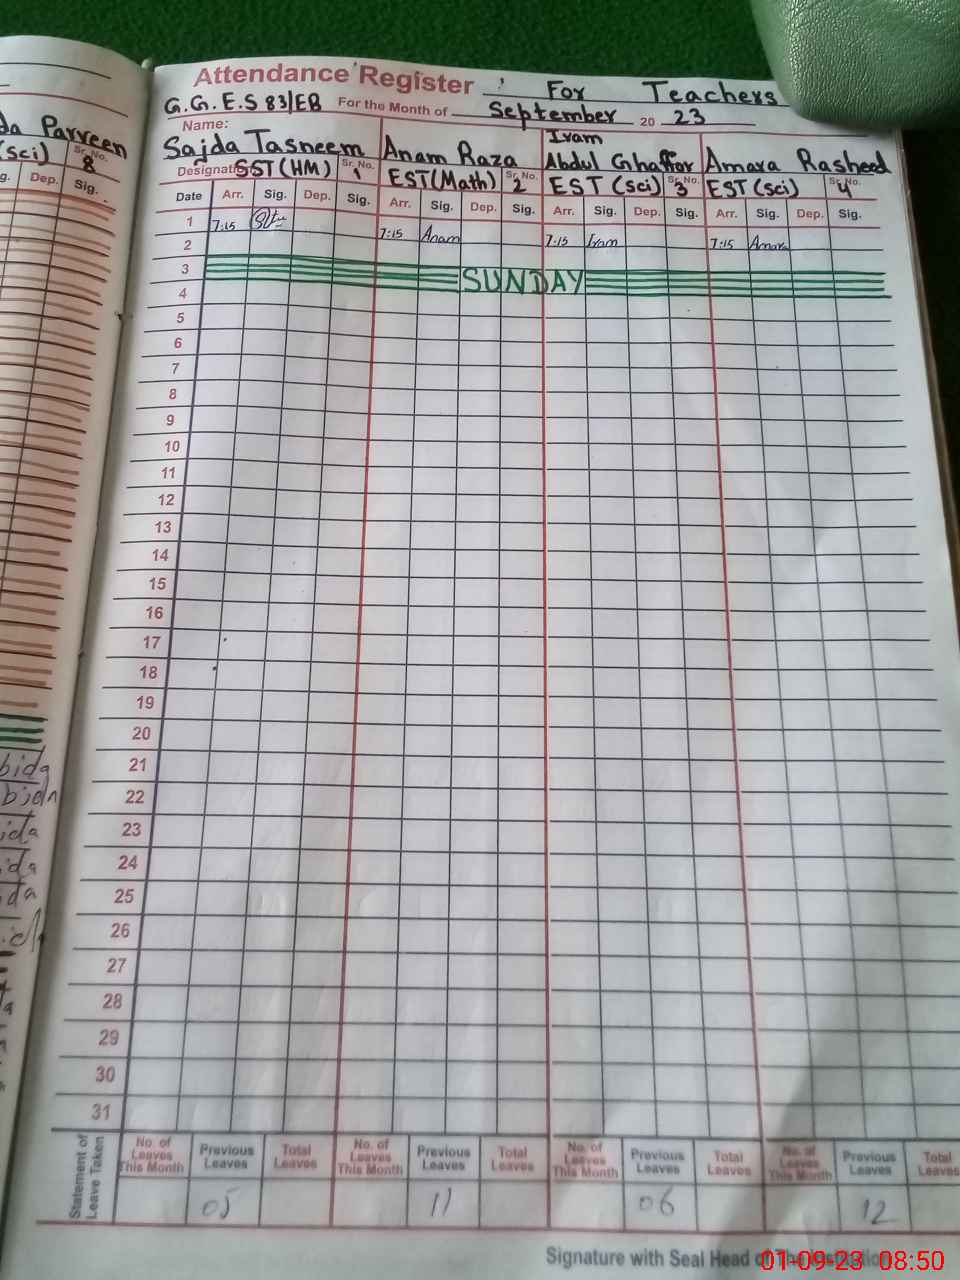 Attendance Register For Teachers
G.G.E.S 83/EB For the Month of September 20 23
Name:
Sajda Tasneem Anam Raza Iram Abdul Ghaffor Amara Rasheed
Designation SST (HM) Sr. No. 1 EST (Math) Sr. No. 2 EST (sci) Sr. No. 3 EST (sci) Sr. No. 4
Date Arr. Sig. Dep. Sig. Arr. Sig. Dep. Sig. Arr. Sig. Dep. Sig. Arr. Sig. Dep. Sig.
1 7:15 7:15 Anam 7:15 Iram 7:15 Amara
2
3 SUNDAY
4
5
6
7
8
9
10
11
12
13
14
15
16
17
18
19
20
21
22
23
24
25
26
27
28
29
30
31
Statement of Leave Taken
No. of Leaves This Month Previous Leaves Total Leaves No. of Leaves This Month Previous Leaves Total Leaves No. of Leaves This Month Previous Leaves Total Leaves No. of Leaves This Month Previous Leaves Total Leaves
05 11 06 12
Signature with Seal Head of The Institution
01-09-23 08:50
Parveen
(sci) Sr. No. 8
Dep. Sig.